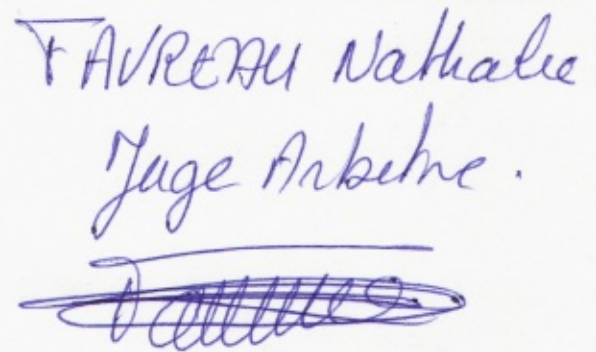 FAVREAU Nathalie
Juge Arbitre.